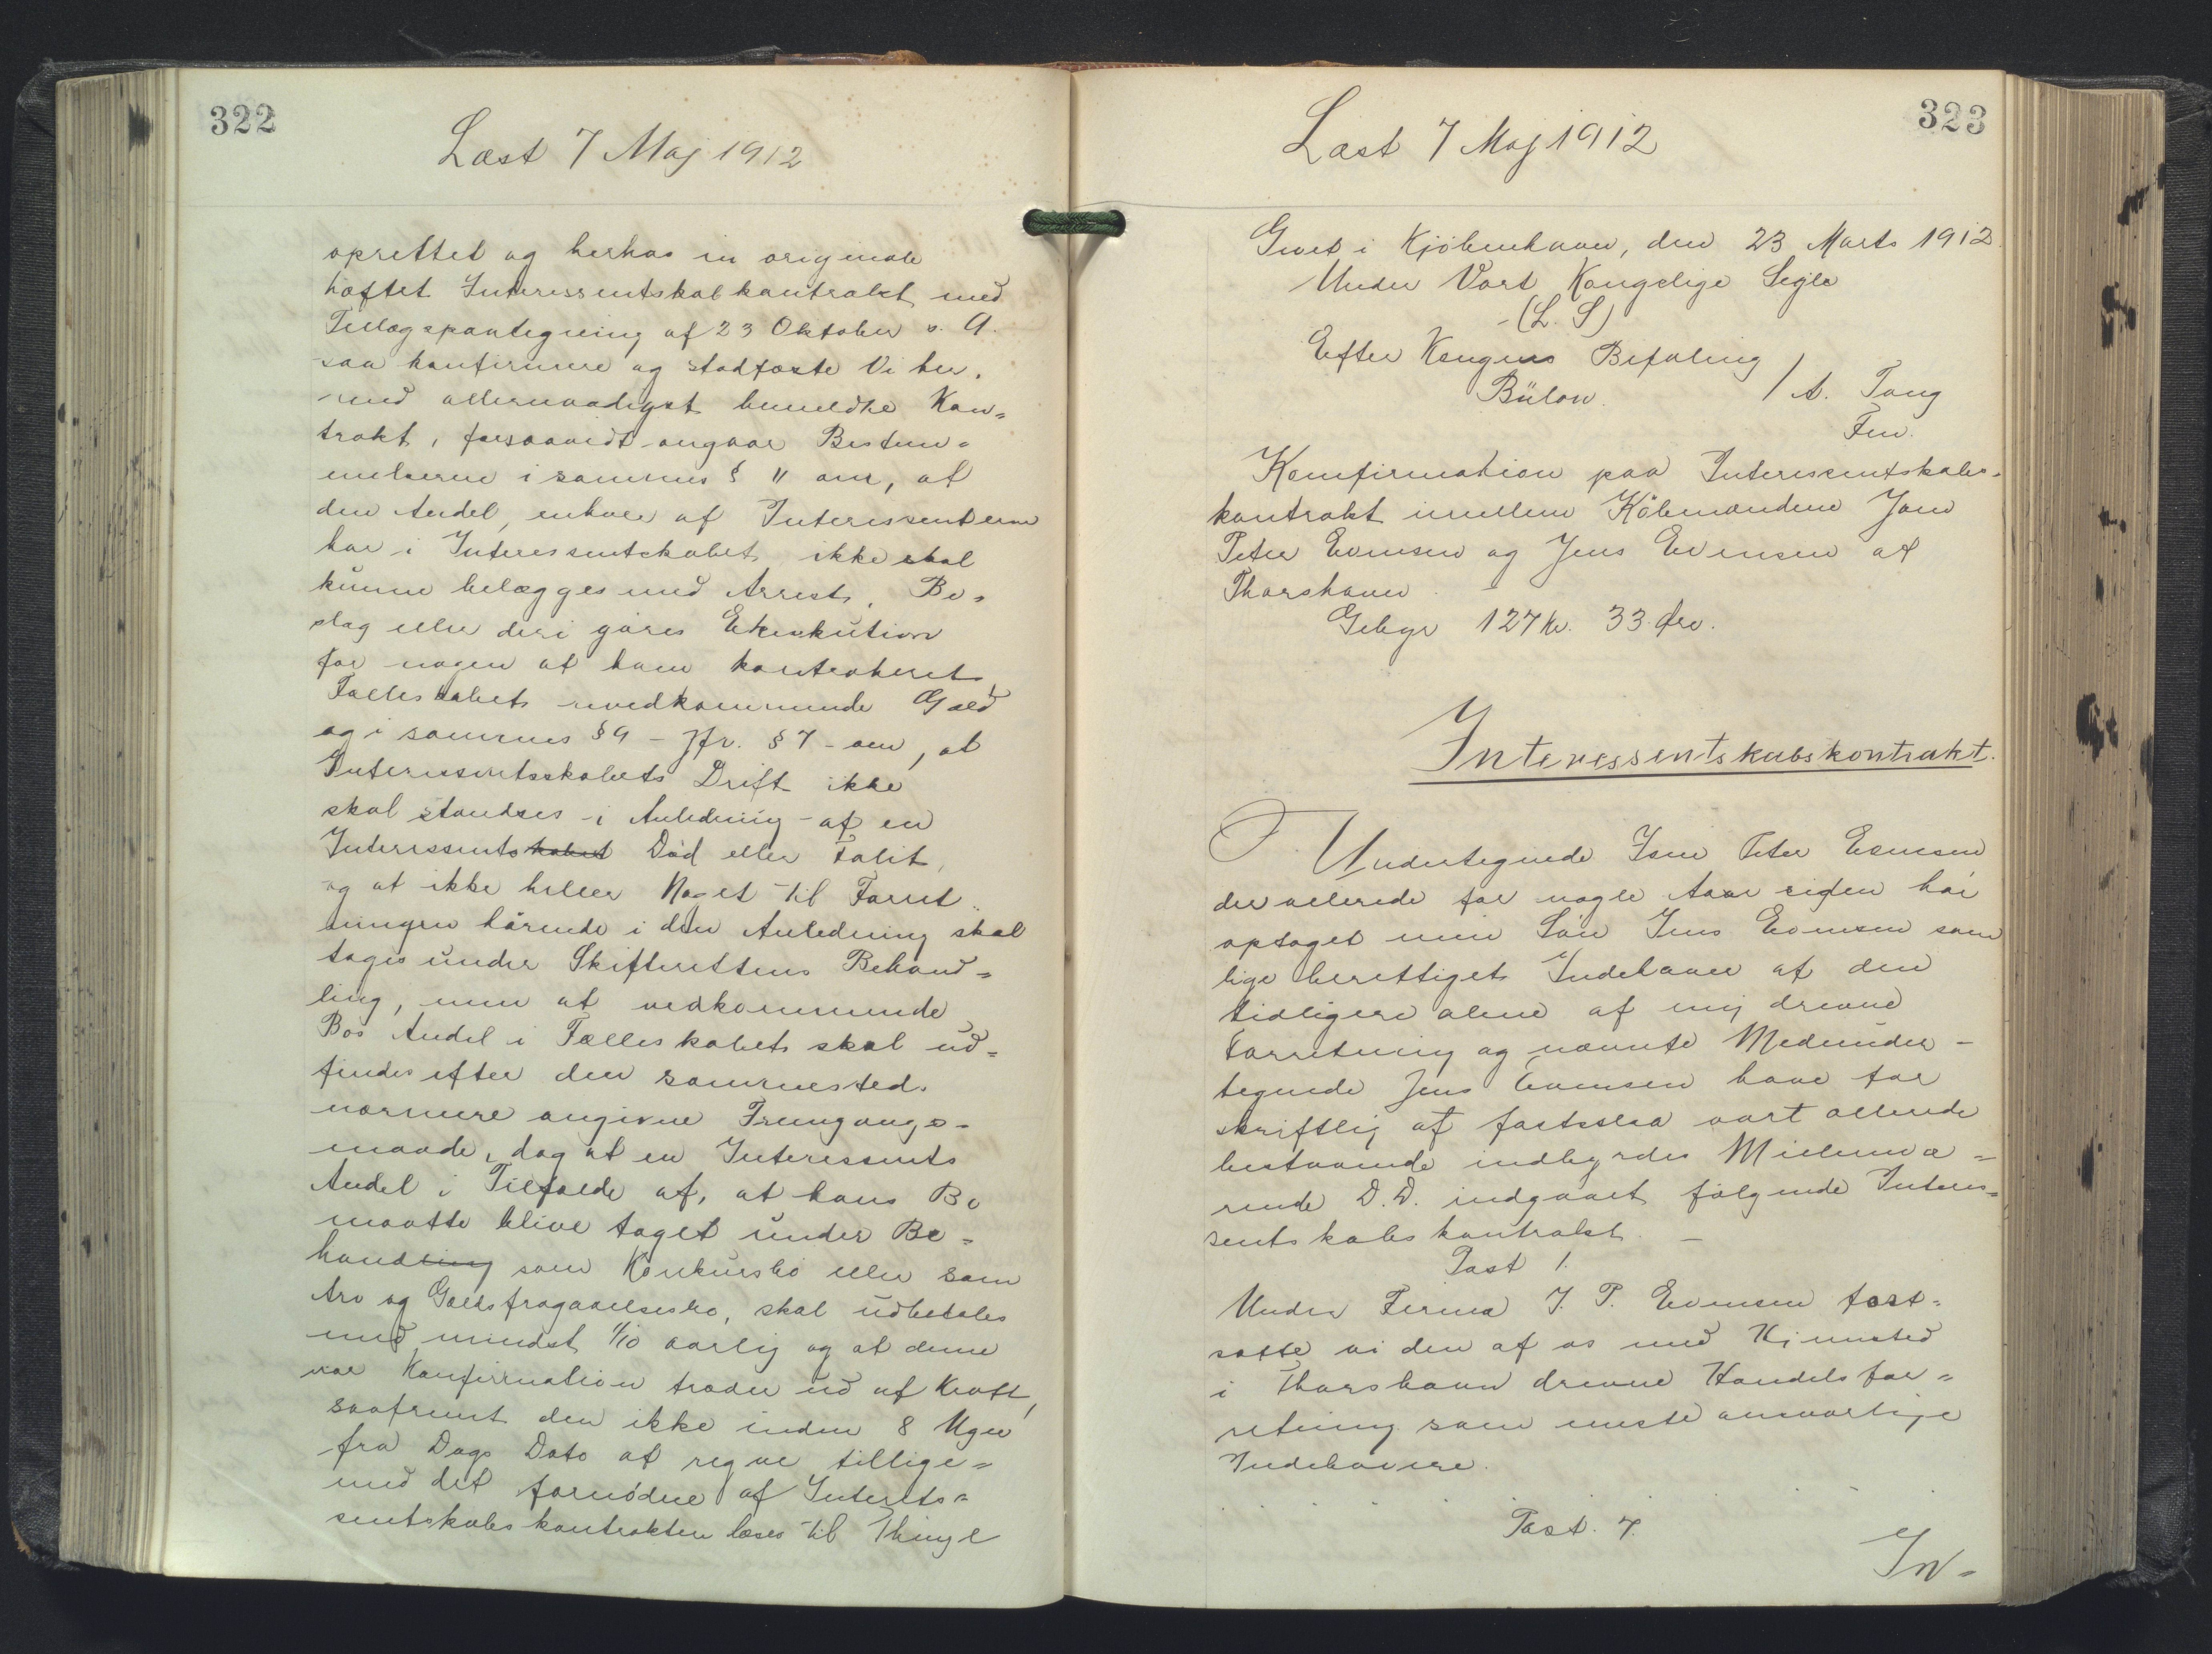 322
Læst 7 Maj 1912
oprettet og herhos in originale
hæftet Interessentskabkontrakt med
Tillægspaategning af 23 Oktober s. A.
saa konfirmere og stadfæste Vi her,
med allernaadigst bemeldte Kon=
trakt, forsaavidt angaar Bestem=
melserne i sammes § 11 om, at
den Andel, enhver af Interessenterne
har i Interessentskabet ikke skal
kunne belægges med Arrest, Be=
slag eller deri gøres Exekution
for nogen af ham kontraheret
Fællesskabet uvedkommende Gæld
og i sammes § 9 - jfr. § 7 - om, at
Interessentsskabets Drift ikke
skal standses i Anledning af en
Interessentskabet Død eller Falit,
og at ikke heller Noget til Forret
ningen hørende i den Anledning skal
tages under Skifterettens Behand=
ling, men at vedkommende
Bos Andel i Fælleskabet skal ud=
findes efter den sammesteds
nærmere angivne Fremgangs=
maade, dog at en Interessents
Andel i Tilfælde af, at hans Bo
maatte blive taget under Be=
handling som Konkursbo eller som
Arv og Gældsfragaaelsesbo, skal udbetales
med mindst 1/10 aarlig og at denne
vor Konfirmation træder ud af Kraft,
saafremt den ikke inden 8 Uger
fra Dags Dato at regne tillige=
med det fornødne af Interets=
sentskabskontrakten læses til Thinge
323
Læst 7 Maj 1912
Givet i Kjöbenhavn, den 23 Marts 1912.
Under Vort Kongelige Segle
(L. S)
Efter Kongens Befaling
Bülow. / A. Tang
Fm.
Komfirmation paa Interessentskabs=
kontrakt imellem Köbmændene Jens
Peter Evensen og Jens Evensen af
Thorshavn
Gebyr 127 Kr. 33 Øre.
Interessentskabskontrakt.
Undertegnede Jens Peter Evensen
der allerede for nogle Aar siden har
optaget min Søn Jens Evensen som
lige berettiget Indehaver af den
tidligere alene af mig drevne
Forretning og nævnte Medunder-
tegnede Jens Evensen have for
skriftlig at fastslaa vort allerede
bestaaende indbyrdes Mellemvæ=
rende D. D. indgaaet følgende Interes=
sentskabskontrakt. -
Post 1.
Under Firma J. P. Evensen fort=
sætte vi den af os med Hjemsted
i Thorshavn drevne Handelsfor=
retning som eneste ansvarlige
Indehavere.
Post. 7.
In=